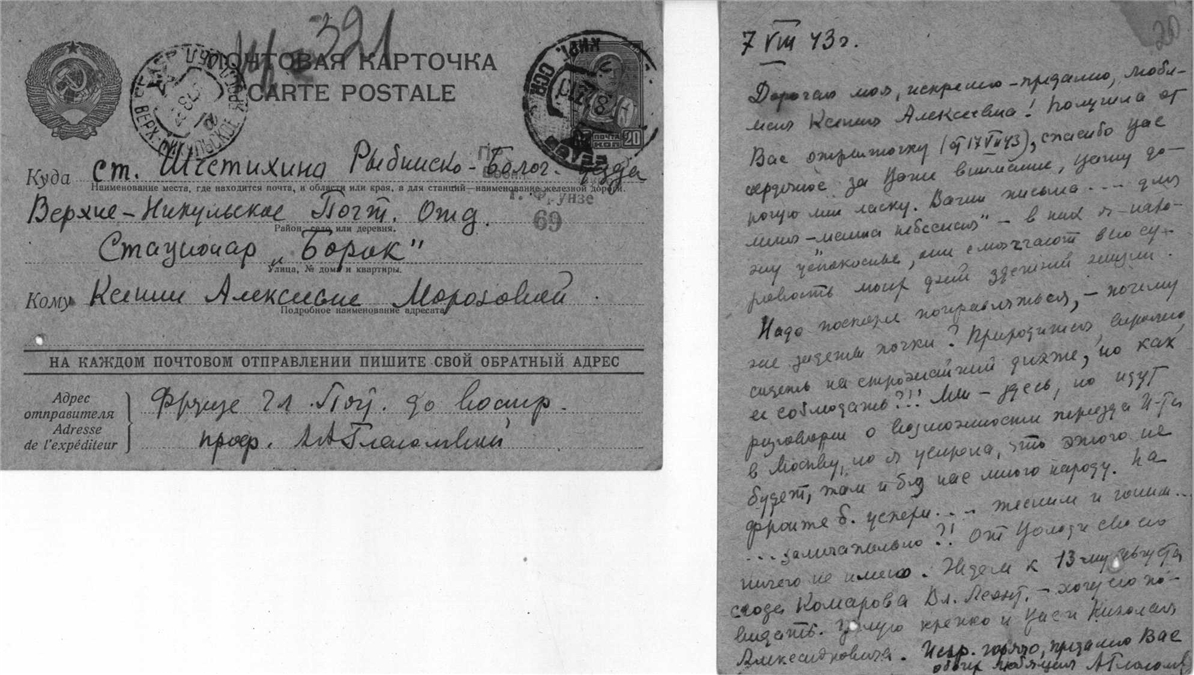 321
ПОЧТОВАЯ КАРТОЧКА
CARTE POSTALE
ПОЧТА
20 КОП
Куда ст. Шестихина Рыбинско-Болог. ж.д.
Наименование места, где находится почта, и области или края, а для станций—наименование железной дороги.
г. Фрунзе
69
Верхне-Никульское Почт. Отд.
Район, село или деревня.
Стационар „Борок"
Улица, № дома и квартиры.
Кому Ксении Алексеевне Морозовой
Подробное наименование адресата
НА КАЖДОМ ПОЧТОВОМ ОТПРАВЛЕНИИ ПИШИТЕ СВОЙ ОБРАТНЫЙ АДРЕС
Адрес
отправителя
Adresse
de l'expéditeur
Фрунзе Гл. Поч. до востр.
проф.
20
7 VIII 43 г.
Дорогая моя, искренно-преданно, люби-
мая Ксения Алексеевна! Получила от
Вас открыточку (от 17 VII 43), спасибо Вас
сердечное за Ваше внимание, Вашу до-
рогую мне ласку. Ваши письма.... для
меня-манна небесная" - в них я нахо-
жу успокоенье, они смягчают всю су-
ровость моих дней здешней жизни.
Надо поскорее поправляться, - почему
же задеты почки? Природится, вероятно
сидеть на строжайшей диэте, но как
ее соблюдать?!! Мы - здесь, но идут
разговоры о возможности переезда И-та
в Москву, но я уверена, что этого не
будет, там и без нас много народу. На
фронте б. успехи.... тесним и гоним...
... замечательно?! От Володи
ничего не имею. Ждем к 13-му августа
сюда Комарова Вл. Леонт. - хочу его по-
видать. Целую крепко и Вас и Николая
Александровича. Искр. горячо, преданно Вас
обоих любящая